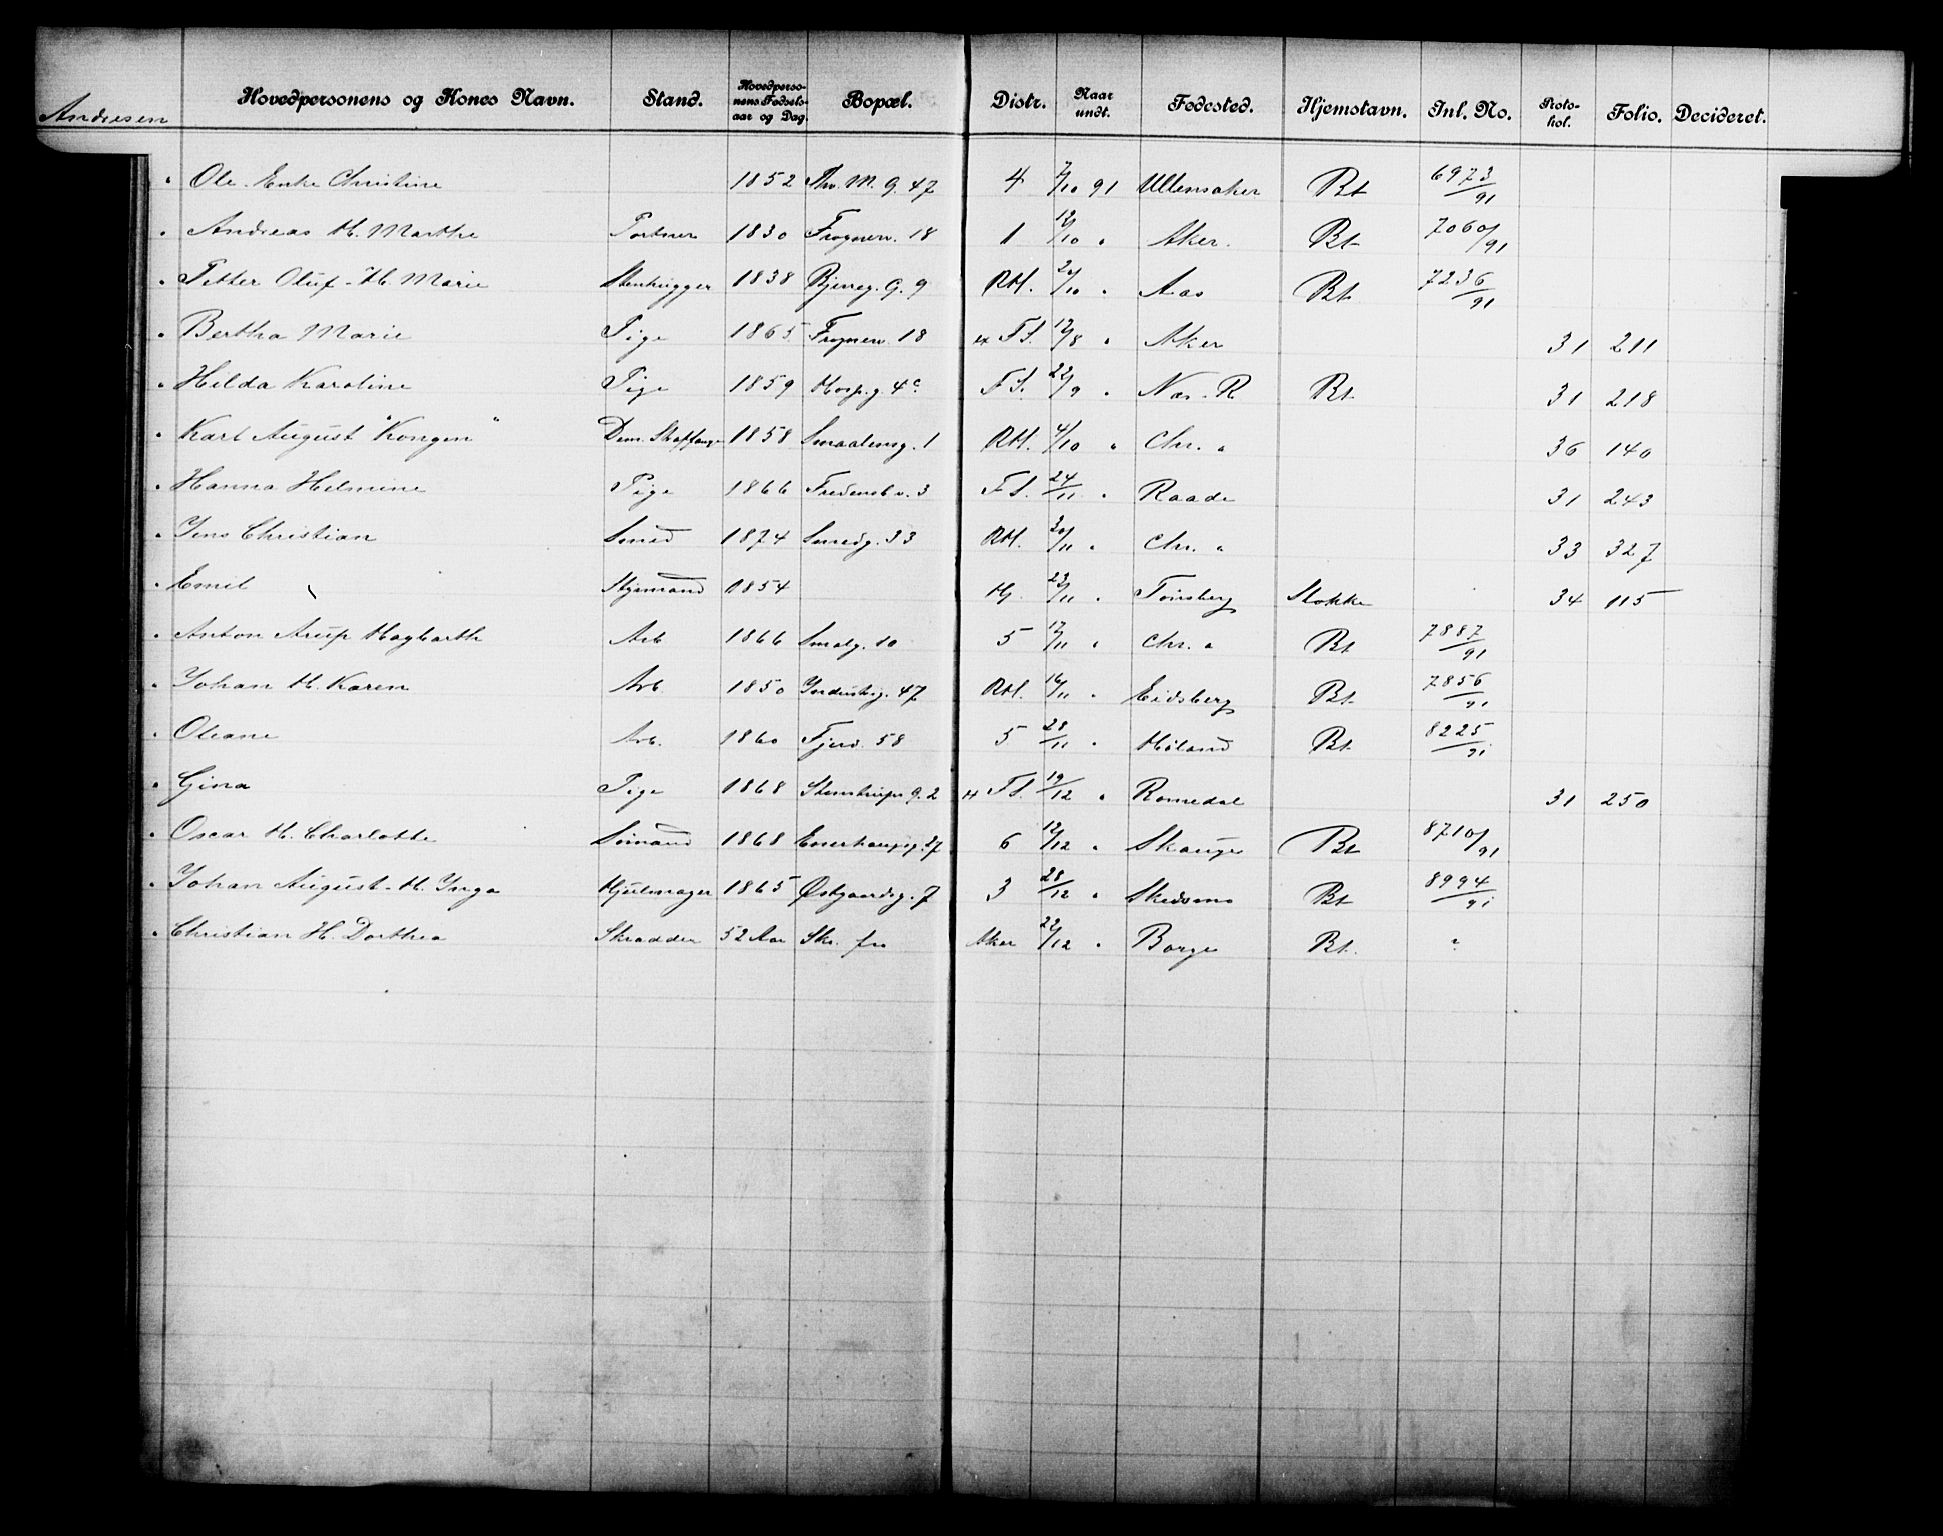 Andresen
Hovedpersonens og Kones Navn. Stand. Hovedperso-nens Fødsels-aar og Dag. Bopæl. Distr. Naar undt. Fødested. Hjemstavn. Inl. No. Proto-kol. Folio. Decideret.
" Ole. Enke Christine 1852 Thv. M. g. 47 4 7/10 91 Ullensaker Bt 6973/91
" Andreas H. Marthe Portner 1830 Frognerv. 18 1 12/10 " Aker. Bt 7060/91
" Petter Oluf - H. Marie Stenhugger 1838 Bjerreg. g. 9 RM. 2/10 " Aas Bt. 7236/91
" Bertha Marie Pige 1865 Frognerv. 18 FS. 12/8 " Aker 31 211
" Hilda Karoline Pige 1859 Hosp. g. 4c FS. 22/9 " Næs. R. Bt. 31 218
" Karl August "Kongen" Dem. 1858 Smaalensg. 1 RM. 4/10 " Chr. a 36 140
" Hanna Helmine Pige 1866 Fredensb v. 3 FS. 24/11 " Raade 31 243
" Jens Christian Smed 1874 Smedg. 33 RM. 30/11 " Chr. a 33 327
" Emil Styrmand 1854 Hj. 23/11 " Tønsberg Stokke 34 115
" Anton Arup Hagbarth Arb 1866 Smalg. 10 5 17/11 " Chr. a Bt 7887/91
" Johan H. Karen Arb. 1850 Industrig. 47 RM. 16/11 " Eidsberg Bt. 7856/91
" Oleane Arb. 1860 Fjerd. 58 5 28/11 " Høland Bt. 8225/91
" Gina Pige 1868 Stenstrups g. 2 FS. 19/12 " Romedal 31 250
" Oscar H. Charlotte Sømand 1868 Enerhaugsg. 27 6 12/12 " Skauger Bt 8710/91
" Johan August - H. Inga Hjulmager 1865 Østgaardsg. 7 3 28/12 " Skedsmo Bt 8994/91
" Christian H. Dorthea Skrædder 52 Aar Sko. fr. Aker 22/12 " Borge Bt. ?